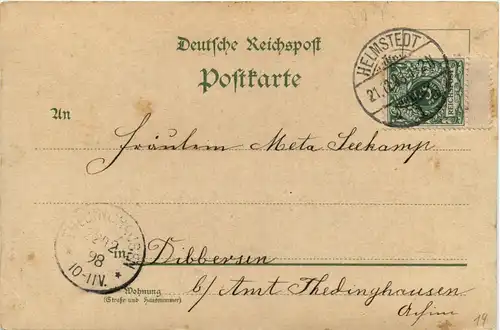 Deutsche Reichspost
Postkarte
HELMSTEDT
An
Fräulein Meta Seekamp
98
10-11V.
in Dibbersen
Wohnung
(Straße und Hausnummer)
b/ Amt Thedinghausen
Achim
14